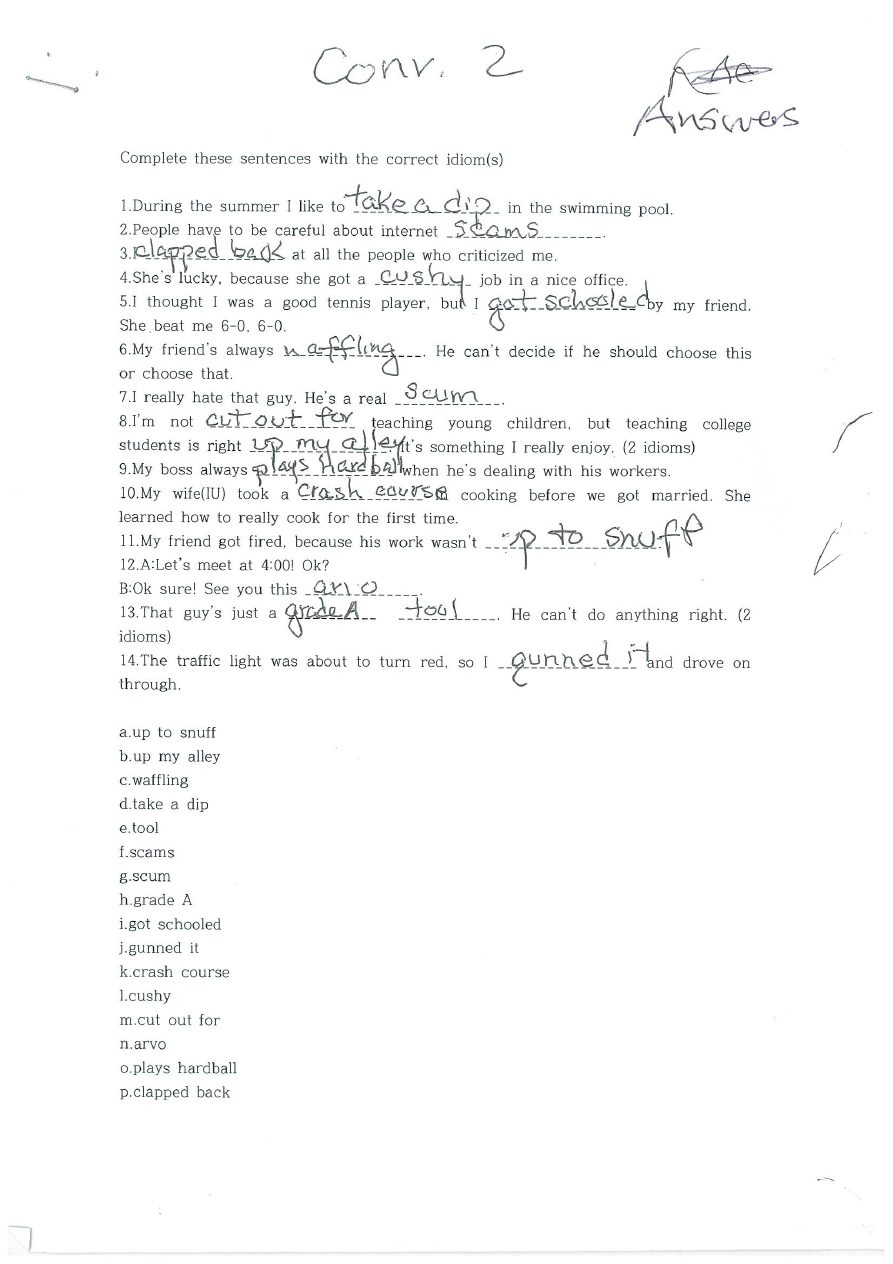 Conv. 2
Answers
Complete these sentences with the correct idiom(s)
1.During the summer I like to take a dip in the swimming pool.
2.People have to be careful about internet scams.
3.I clapped back at all the people who criticized me.
4.She's lucky, because she got a cushy job in a nice office.
5.I thought I was a good tennis player, but I got schooled by my friend.
She beat me 6-0, 6-0.
6.My friend's always waffling. He can't decide if he should choose this
or choose that.
7.I really hate that guy. He's a real scum.
8.I'm not cut out for teaching young children, but teaching college
students is right up my alley. It's something I really enjoy. (2 idioms)
9.My boss always plays hardball when he's dealing with his workers.
10.My wife(IU) took a crash course cooking before we got married. She
learned how to really cook for the first time.
11.My friend got fired, because his work wasn't up to snuff
12.A:Let's meet at 4:00! Ok?
B:Ok sure! See you this arvo.
13.That guy's just a grade A tool. He can't do anything right. (2
idioms)
14.The traffic light was about to turn red, so I gunned it and drove on
through.
a.up to snuff
b.up my alley
c.waffling
d.take a dip
e.tool
f.scams
g.scum
h.grade A
i.got schooled
j.gunned it
k.crash course
l.cushy
m.cut out for
n.arvo
o.plays hardball
p.clapped back